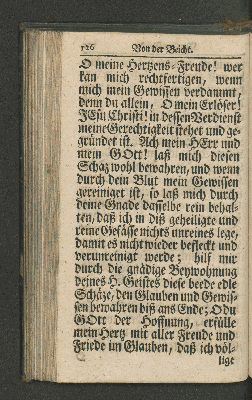 126 Von der Beicht.
O meine Hertzens-Freude! wer
kan mich rechtfertigen, wenn
mich mein Gewissen verdammt,
denn du allein, O mein Erlöser!
JEsu Christi! in dessen Verdienst
meine Gerechtigkeit stehet und ge-
gründet ist. Ach mein HErr und
mein GOtt! laß mich diesen
Schaz wohl bewahren, und wenn
durch dein Blut mein Gewissen
gereiniget ist, so laß mich durch
deine Gnade dasselbe rein behal-
ten, daß ich in diß geheiligte und
reine Gefässe nichts unreines lege,
damit es nicht wieder befleckt und
verunreinigt werde; hilf mir
durch die gnädige Beywohnung
deines H. Geistes diese beede edle
Schäze, den Glauben und Gewis-
sen bewahren biß ans Ende; O du
GOtt der Hoffnung, erfülle
mein Hertz mit aller Freude und
Friede im Glauben, daß ich völ-
lige